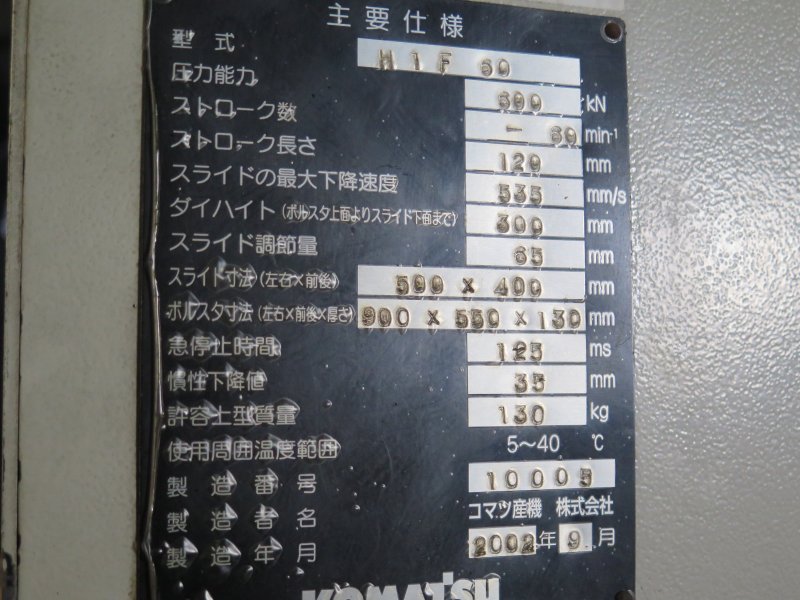 主要仕様
型式 H1F60
圧力能力 600 kN
ストローク数 － 60 min-1
ストローク長さ 120 mm
スライドの最大下降速度 535 mm/s
ダイハイト(ボルスタ上面よりスライド下面まで) 300 mm
スライド調節量 65 mm
スライド寸法(左右×前後) 500 × 400 mm
ボルスタ寸法(左右×前後×厚さ) 900 × 550 × 130 mm
急停止時間 125 ms
慣性下降値 35 mm
許容上型質量 130 kg
使用周囲温度範囲 5～40 ℃
製造番号 10005
製造者名 コマツ産機 株式会社
製造年月 2002年9月
KOMATSU